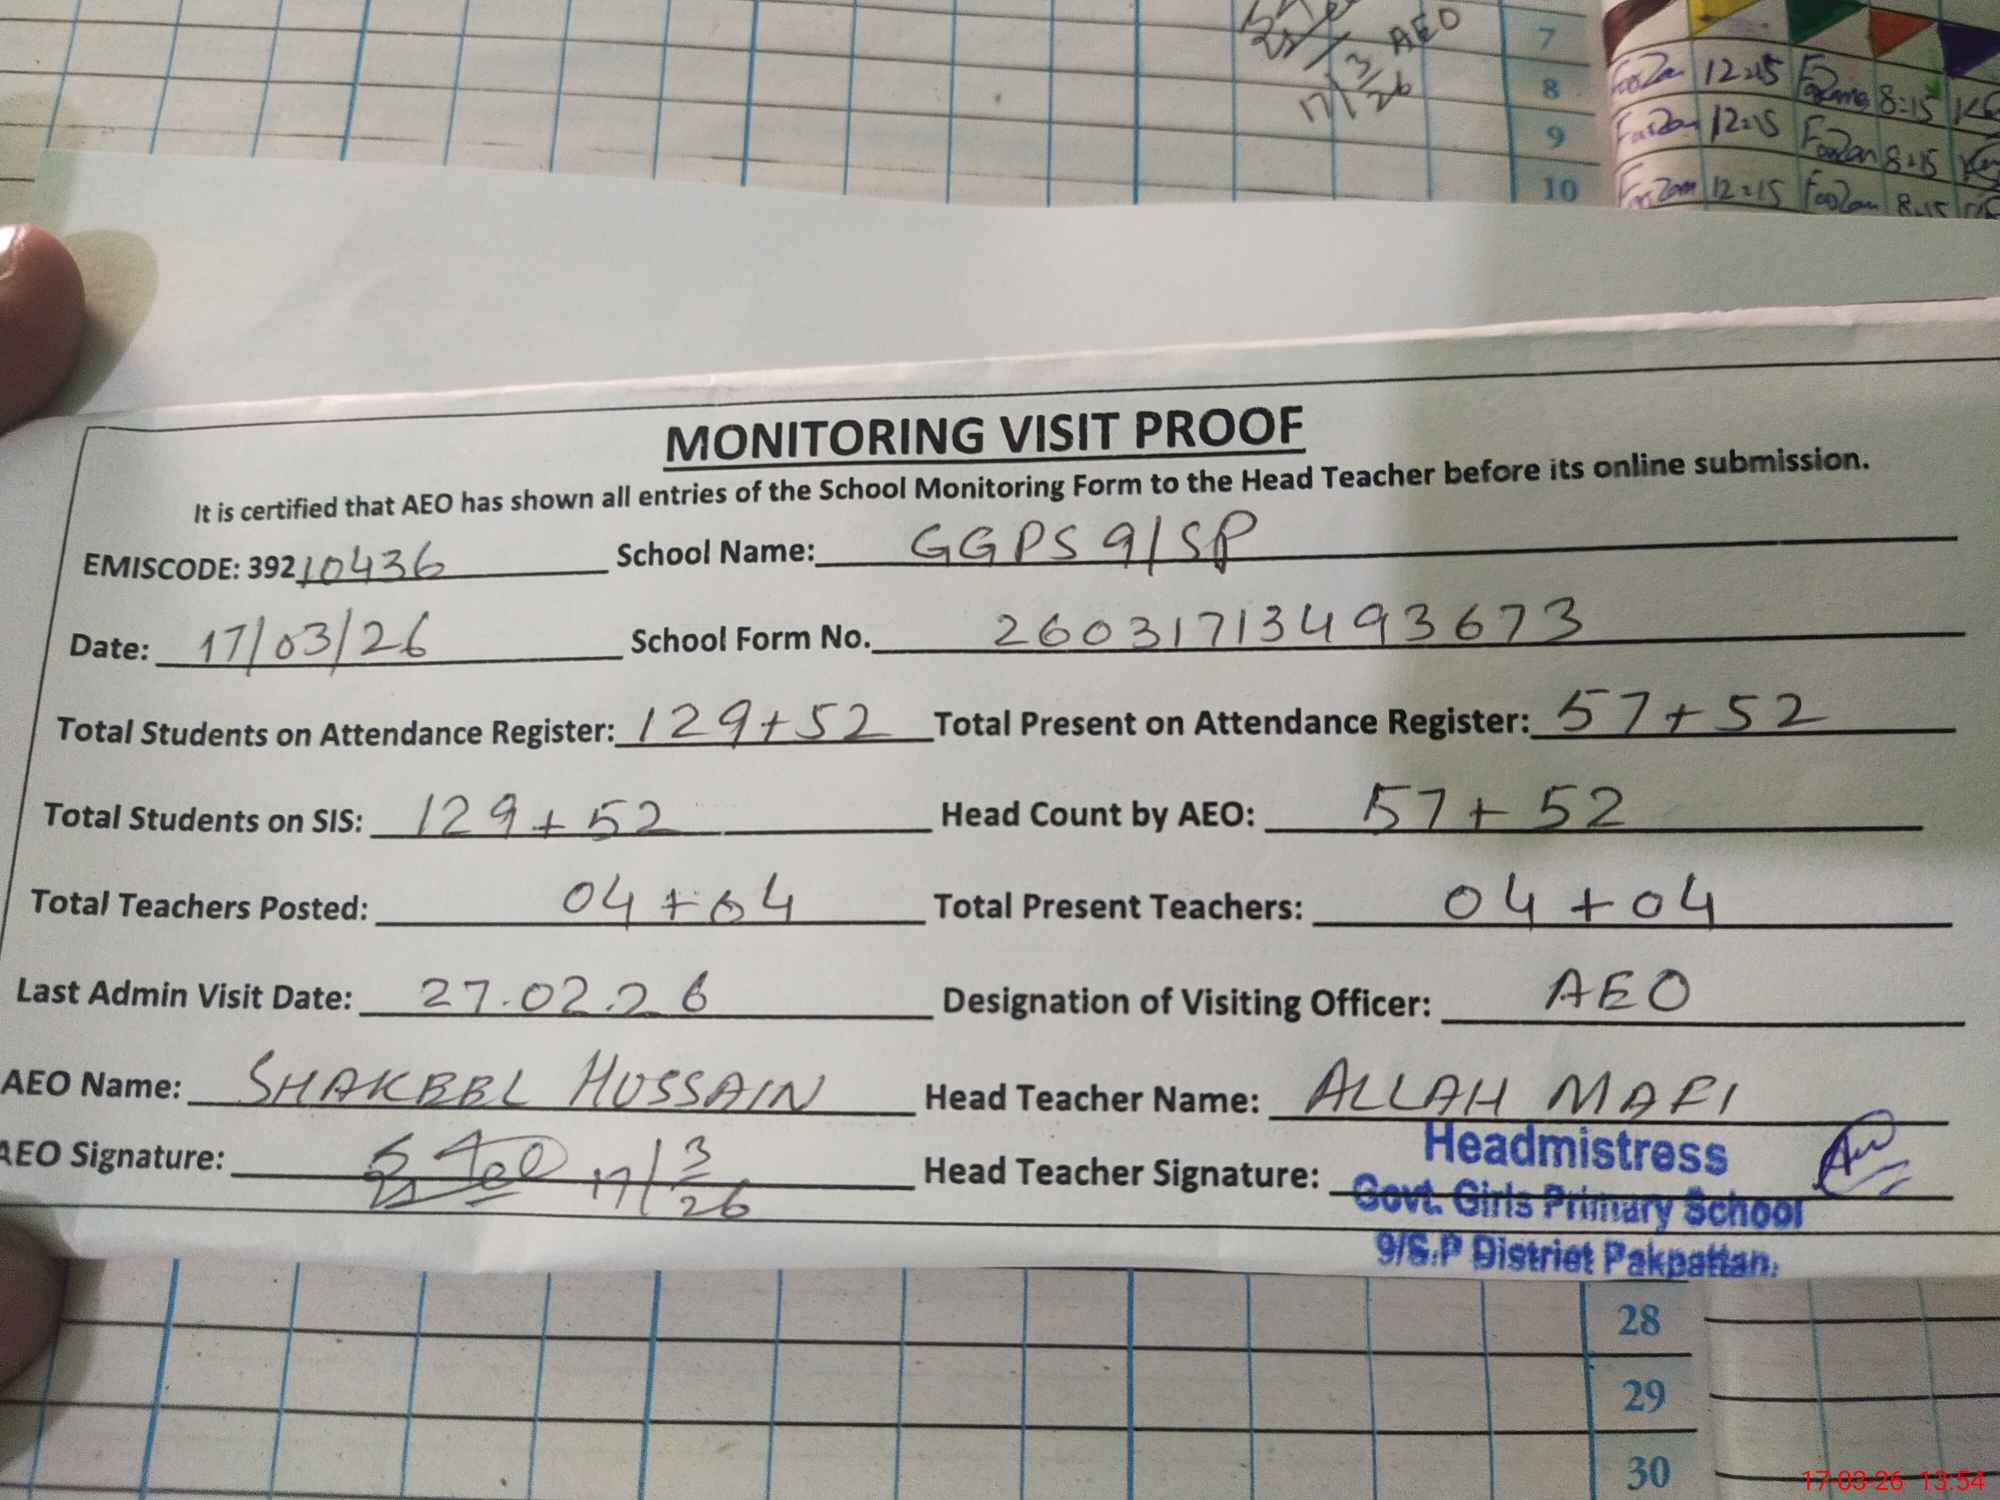 AEO
17/3/26
7
8
9
10
12:15 8:15
12:15 8:15
12:15 8:15
MONITORING VISIT PROOF
It is certified that AEO has shown all entries of the School Monitoring Form to the Head Teacher before its online submission.
EMISCODE: 39210436 School Name: GGPS 9/SP
Date: 17/03/26 School Form No. 26031713493673
Total Students on Attendance Register: 129+52 Total Present on Attendance Register: 57+52
Total Students on SIS: 129+52 Head Count by AEO: 57+52
Total Teachers Posted: 04+04 Total Present Teachers: 04+04
Last Admin Visit Date: 27.02.26 Designation of Visiting Officer: AEO
AEO Name: SHAKEEL HUSSAIN Head Teacher Name: ALLAH MAFI
AEO Signature: 17/3/26 Head Teacher Signature:
Headmistress
Govt. Girls Primary School
9/S.P District Pakpattan.
28
29
30
17-03-26 13:54